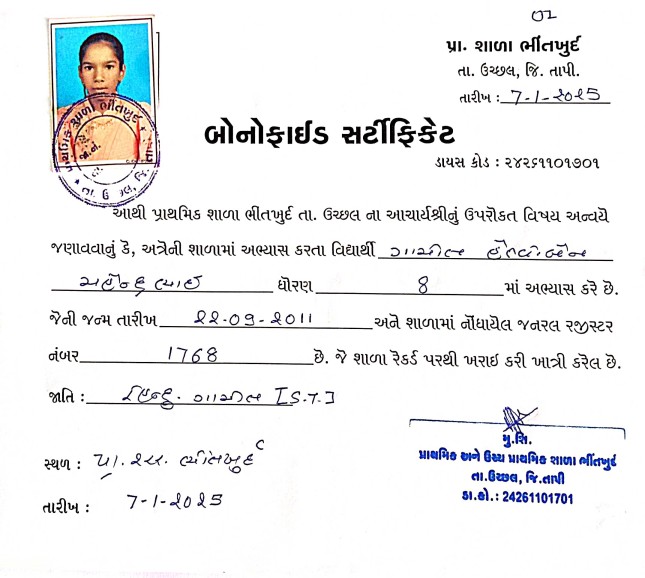 02
પ્રા. શાળા ભીંતખુર્દ
તા. ઉચ્છલ, જિ. તાપી.
તારીખ : 7-1-2025
પ્રાથમિક શાળા ભીંતખુર્દ
તા. ઉચ્છલ, જિ. તા
બોનોફાઈડ સર્ટીફિકેટ
ડાયસ કોડ : ૨૪૨૬૧૧૦૧૭૦૧
આથી પ્રાથમિક શાળા ભીંતખુર્દ તા. ઉચ્છલ ના આચાર્યશ્રીનું ઉપરોકત વિષય અન્વયે
જણાવવાનું કે, અત્રેની શાળામાં અભ્યાસ કરતા વિદ્યાર્થી ગામીત
ધોરણ 8 માં અભ્યાસ કરે છે.
જેની જન્મ તારીખ 22-09-2011 અને શાળામાં નોંધાયેલ જનરલ રજીસ્ટર
નંબર 1768 છે. જે શાળા રેકર્ડ પરથી ખરાઇ કરી ખાત્રી કરેલ છે.
જાતિ : હિન્દુ ગામીત [S.T.]
સ્થળ : પ્રા. શા. ભીંતખુર્દ
તારીખ : 7-1-2025
મુ.શિ.
પ્રાથમિક અને ઉચ્ચ પ્રાથમિક શાળા ભીંતખુર્દ
તા.ઉચ્છલ, જિ.તાપી
ડા.કો.: 24261101701